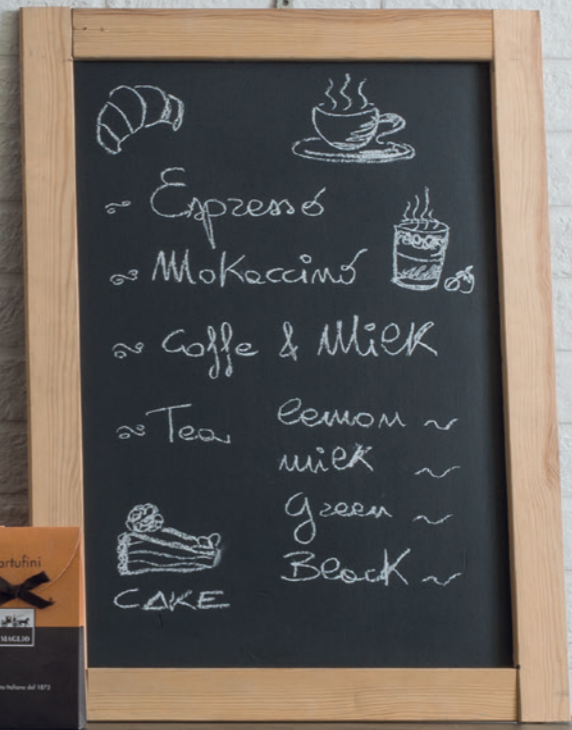 Espresso
Mokaccino
Coffe & Milk
Tea
lemon
milk
green
Black
CAKE
artufini
MAGLIO
Italiana dal 1875